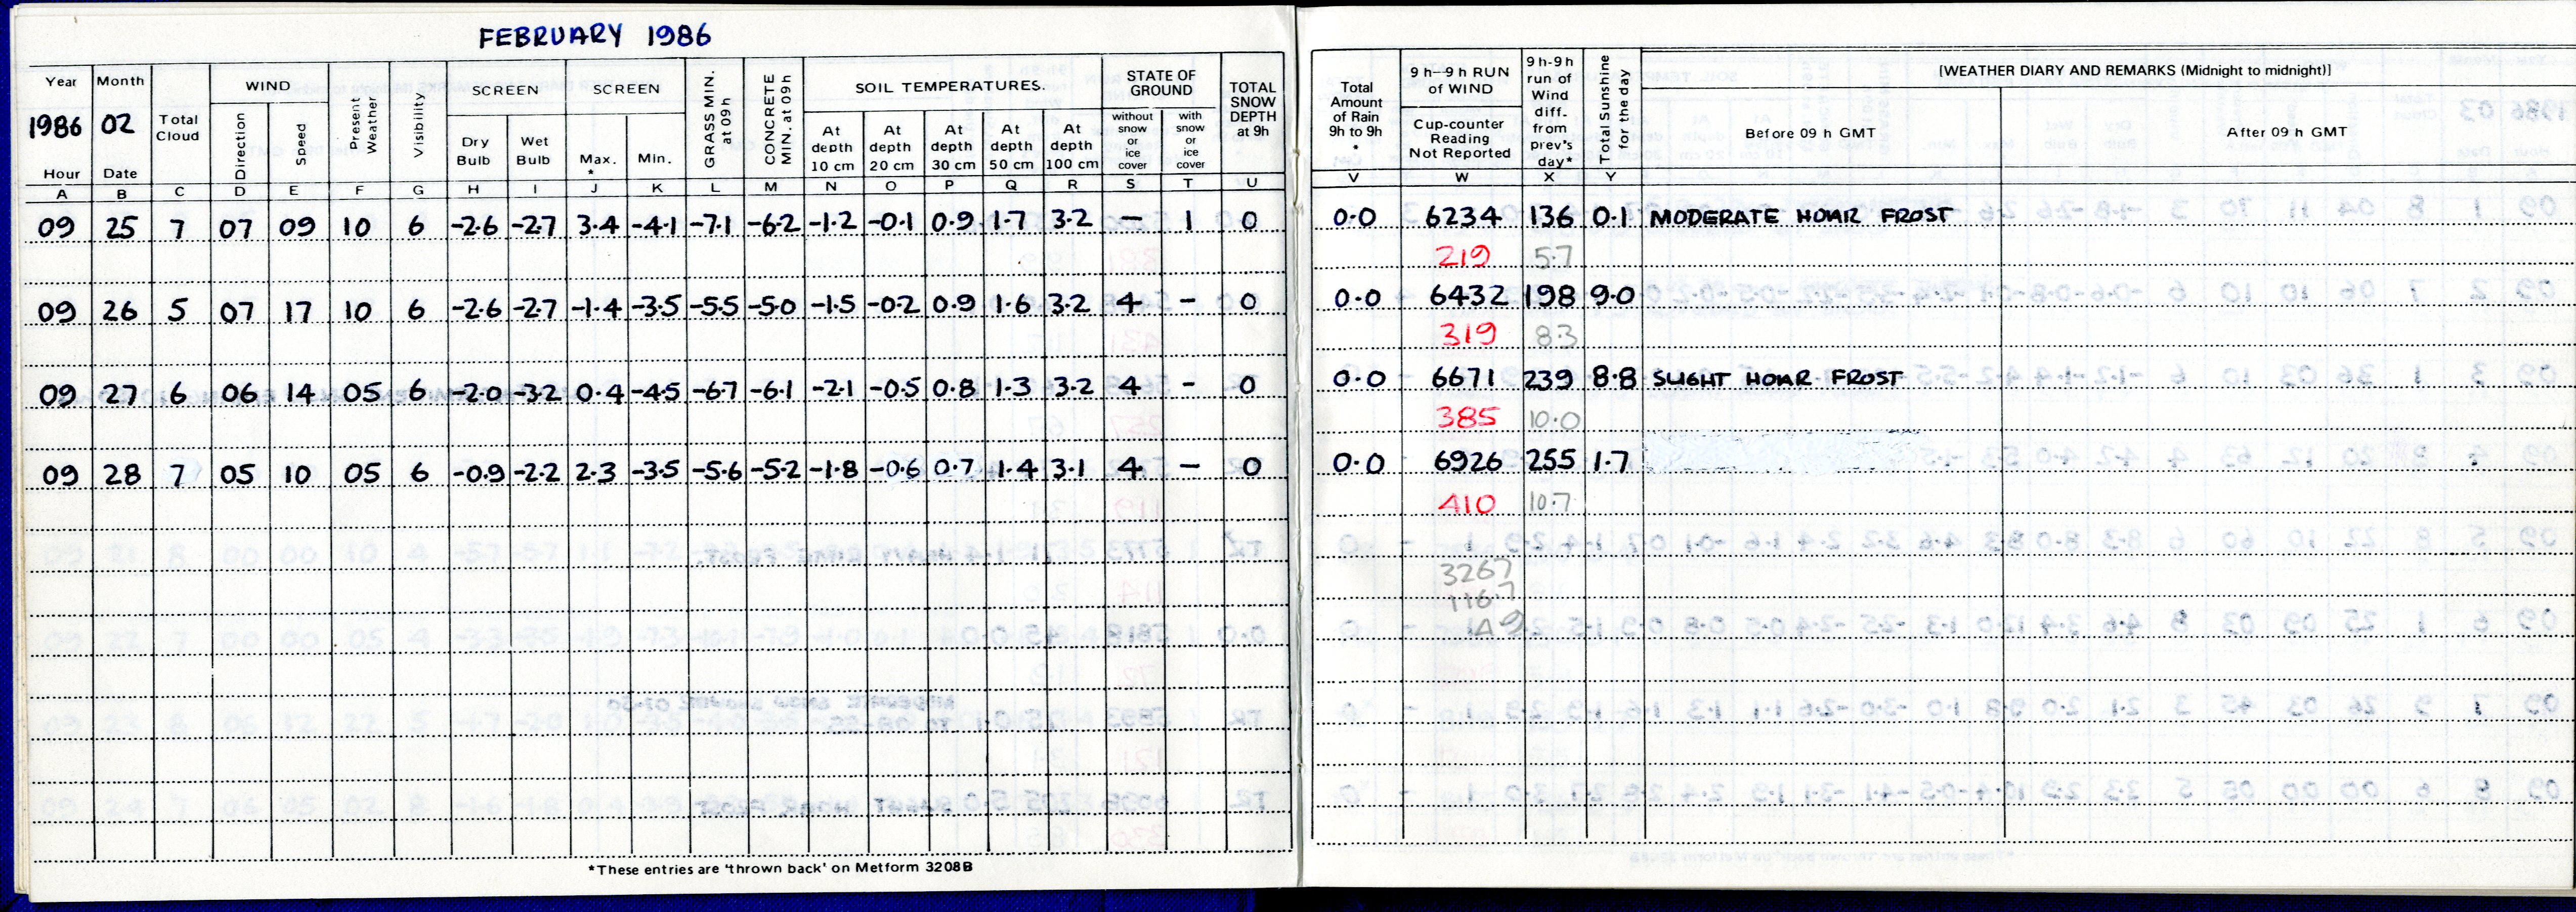 FEBRUARY 1986
Year Month Total Cloud WIND Present Weather Visibility SCREEN SCREEN GRASS MIN. at 09h CONCRETE MIN. at 09h SOIL TEMPERATURES. STATE OF GROUND TOTAL SNOW DEPTH at 9h Total Amount of Rain 9h to 9h * 9h–9h RUN of WIND 9h-9h run of Wind diff- from prev's day* Total Sunshine for the day [WEATHER DIARY AND REMARKS (Midnight to midnight)]
1986 02 Direction Speed Dry Bulb Wet Bulb Max. * Min. At depth 10 cm At depth 20 cm At depth 30 cm At depth 50 cm At depth 100 cm without snow or ice cover with snow or ice cover Cup-counter Reading Not Reported Before 09 h GMT After 09 h GMT
Hour Date
A B C D E F G H I J K L M N O P Q R S T U V W X Y
09 25 7 07 09 10 6 -2.6 -2.7 3.4 -4.1 -7.1 -6.2 -1.2 -0.1 0.9 1.7 3.2 – 1 0 0.0 6234 136 0.1 MODERATE HOAR FROST
219 5.7
09 26 5 07 17 10 6 -2.6 -2.7 -1.4 -3.5 -5.5 -5.0 -1.5 -0.2 0.9 1.6 3.2 4 – 0 0.0 6432 198 9.0
319 8.3
09 27 6 06 14 05 6 -2.0 -3.2 0.4 -4.5 -6.7 -6.1 -2.1 -0.5 0.8 1.3 3.2 4 – 0 0.0 6671 239 8.8 SLIGHT HOAR FROST
385 10.0
09 28 7 05 10 05 6 -0.9 -2.2 2.3 -3.5 -5.6 -5.2 -1.8 -0.6 0.7 1.4 3.1 4 – 0 0.0 6926 255 1.7
410 10.7
3267
116.7
*These entries are 'thrown back' on Metform 3208B